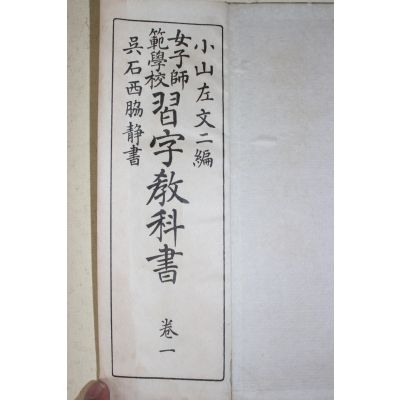 小山左文二編
女子師範學校
習字教科書
卷一
呉石西脇静書